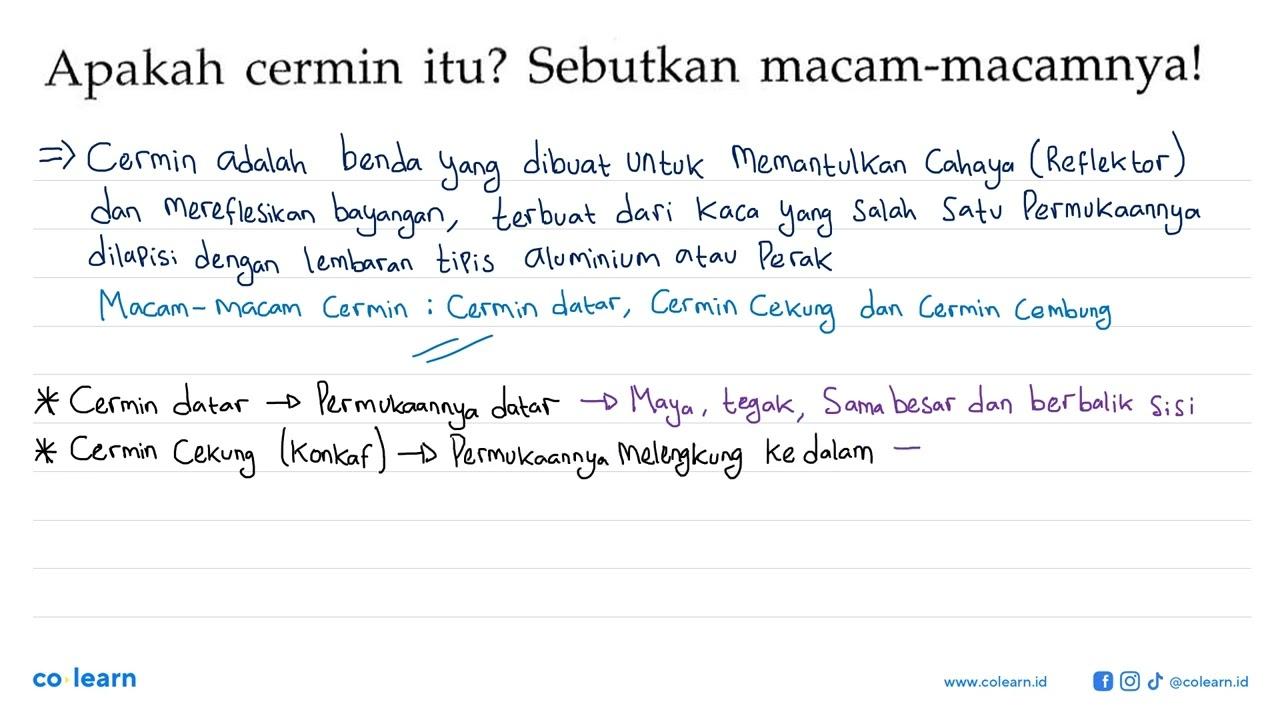 Apakah cermin itu? Sebutkan macam-macamnya!
=> Cermin adalah benda yang dibuat untuk memantulkan cahaya (Reflektor)
dan mereflesikan bayangan, terbuat dari kaca yang salah satu permukaannya
dilapisi dengan lembaran tipis aluminium atau perak
Macam-macam cermin : Cermin datar, Cermin cekung dan cermin cembung
* Cermin datar → Permukaannya datar → Maya, tegak, sama besar dan berbalik sisi
* Cermin cekung (konkaf) → Permukaannya melengkung ke dalam —
co learn
www.colearn.id
@colearn.id